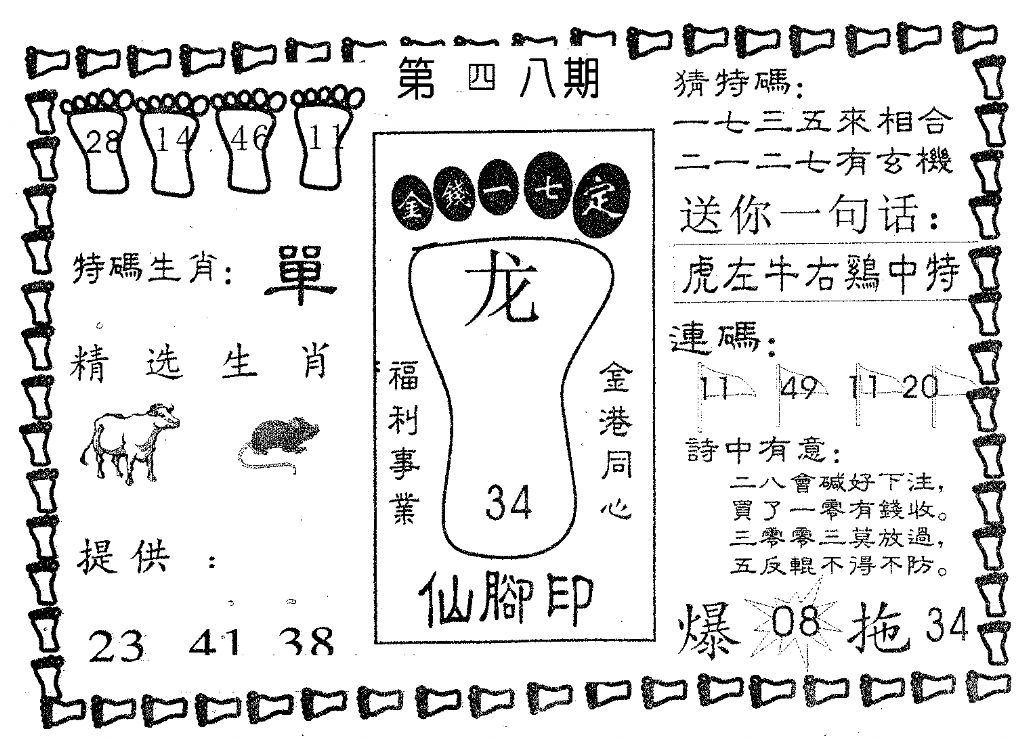 第四八期
28 14 46 11
特碼生肖：單
精选生肖
提供：
23 41 38
金錢一七定
龙
福利事業
金港同心
34
仙腳印
猜特碼：
一七三五來相合
二一二七有玄機
送你一句话：
虎左牛右鷄中特
連碼：
11 49 11 20
詩中有意：
二八會碱好下注，
買了一零有錢收。
三零零三莫放過，
五反輥不得不防。
爆 08 拖 34